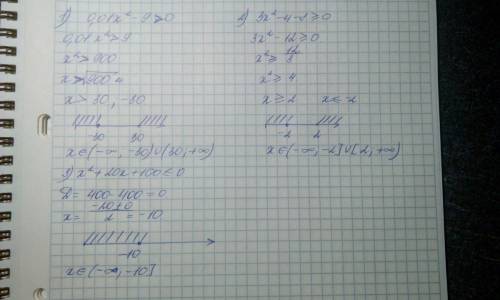 1) 0,01x² - 9 > 0
0,01x² > 9
x² > 900
x > 30, -30
-30 30
x ∈ (-∞, -30) ∪ (30, +∞)
3) x² + 20x + 100 ≤ 0
D = 400 - 400 = 0
x = (-20 ± 0) / 2 = -10
-10
x ∈ (-∞, -10]
3x² - 4 - 2 ≥ 0
3x² - 12 ≥ 0
x² ≥ 12/3
x² ≥ 4
x ≥ 2 x ≤ -2
-2 2
x ∈ (-∞, -2] ∪ [2, +∞)